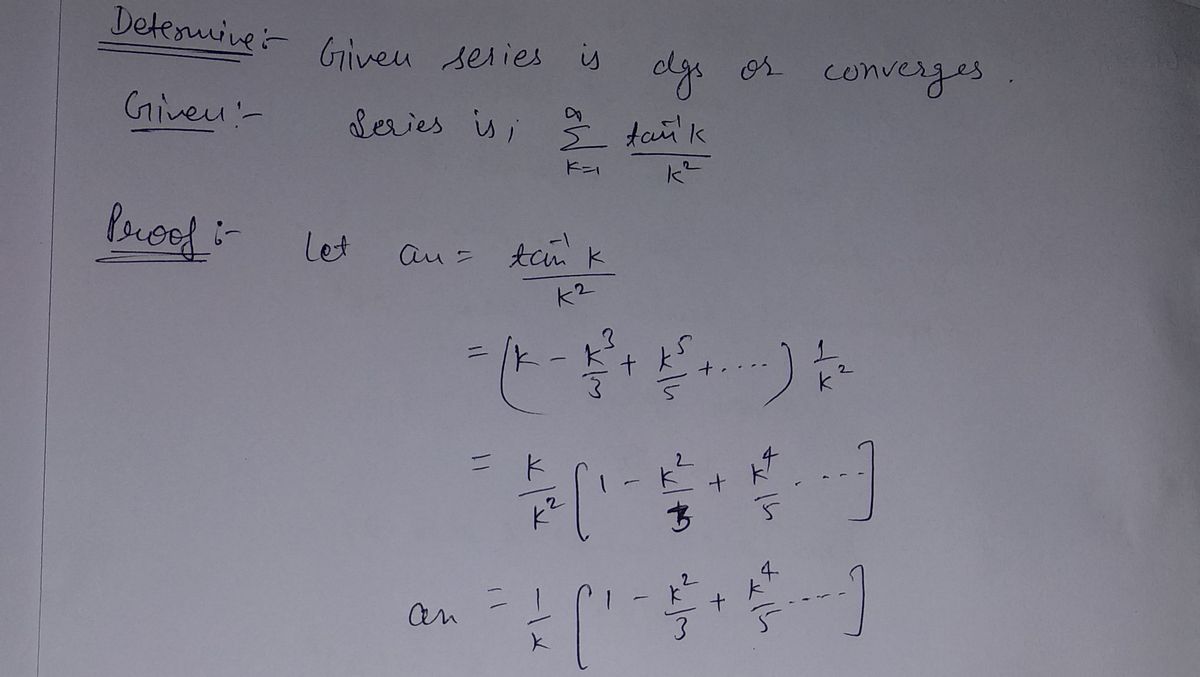 Determine:- Given series is dgs or converges.
Given:- Series is; ∞∑k=1 tan⁻¹k/k²
Proof:- Let an = tan⁻¹ k/k²
= (k - k³/3 + k⁵/5 + ....) 1/k²
= k/k² [1 - k²/3 + k⁴/5 . ...]
an = 1/k [1 - k²/3 + k⁴/5 ....]